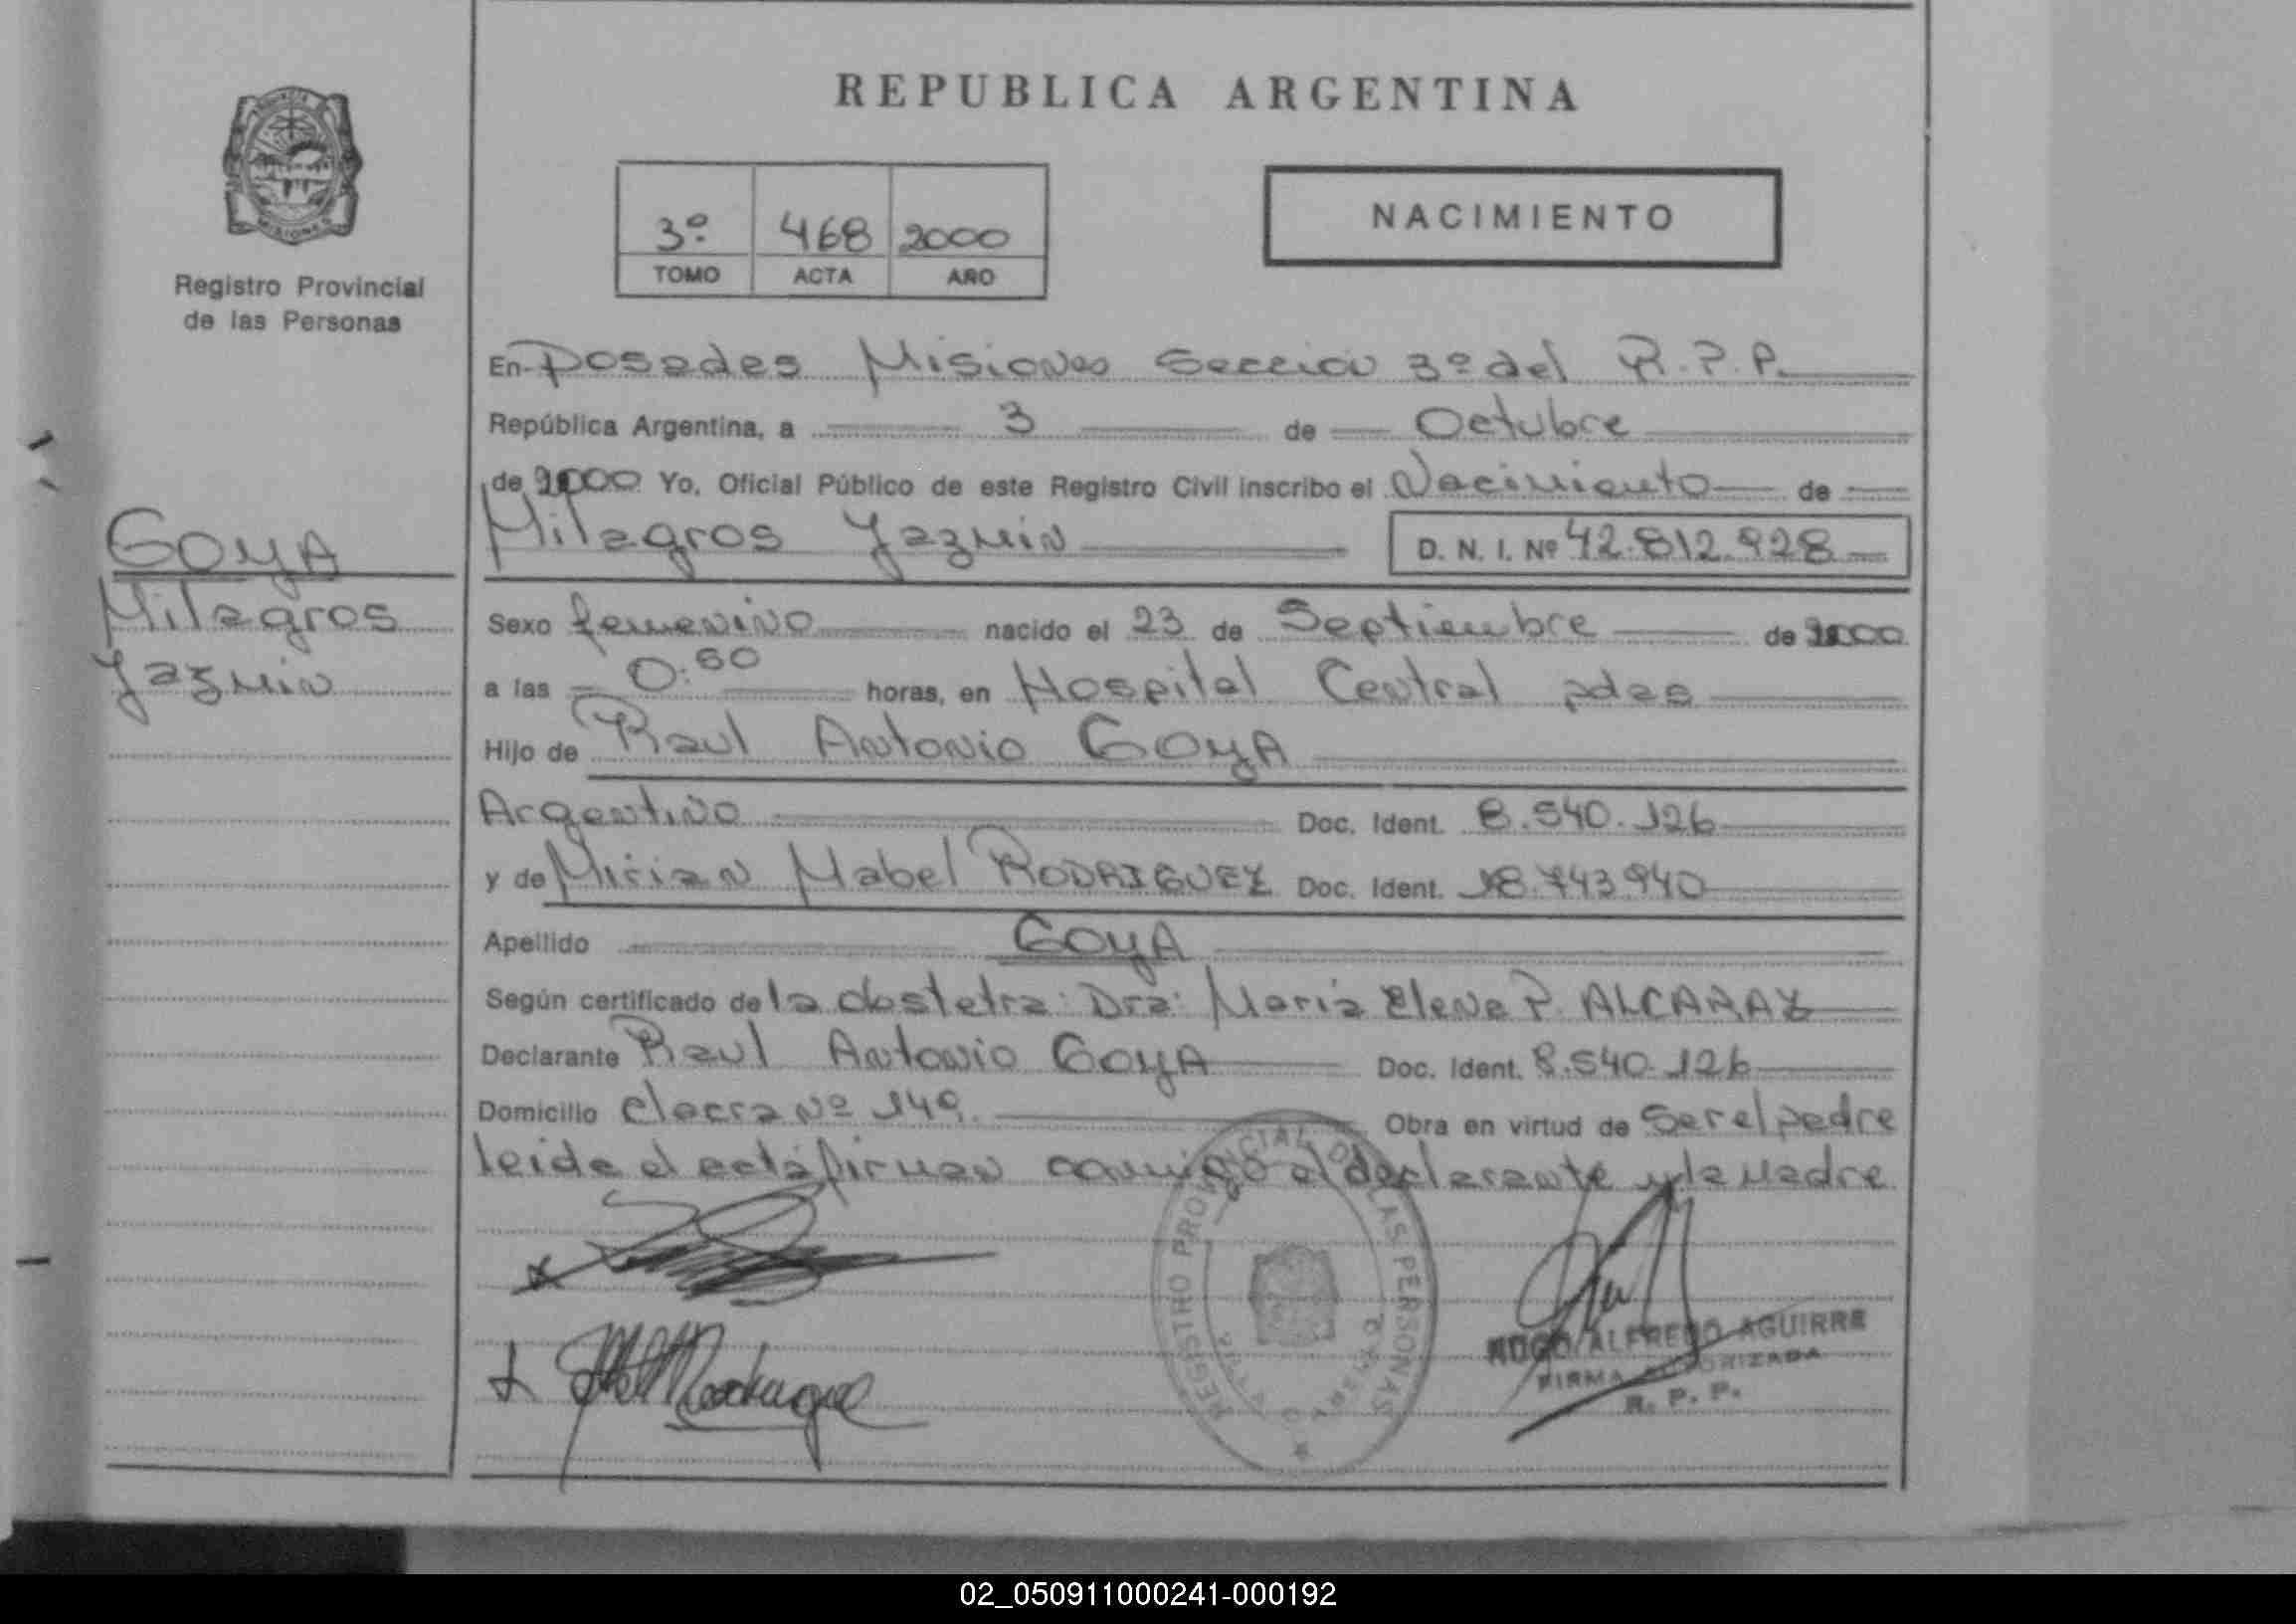 REPUBLICA ARGENTINA
Registro Provincial
de las Personas
3º 468 2000
TOMO ACTA AÑO
NACIMIENTO
En Posadas Misiones Sección 3º del R.P.P.
República Argentina, a 3 de Octubre
de 2000 Yo, Oficial Público de este Registro Civil inscribo el Nacimiento de
Milagros Yazmin D. N. I. Nº 42.812.928
GOYA
Milagros
Yazmin
Sexo femenino nacido el 23 de Septiembre de 2000
a las 0:50 horas, en Hospital Central pdas
Hijo de Raul Antonio GOYA
Argentino Doc. Ident. 8.540.126
y de Mirian Mabel RODRIGUEZ Doc. Ident. 18.743.940
Apellido GOYA
Según certificado de la obstetra: Dra: Maria Elena P. ALCARAZ
Declarante Raul Antonio GOYA Doc. Ident. 8.540.126
Domicilio chacra Nº 149. Obra en virtud de ser el padre
leida el acta firman conmigo el declarante y la Madre
REGISTRO PROVINCIAL DE LAS PERSONAS
HUGO ALFREDO AGUIRRE
FIRMA AUTORIZADA
R. P. P.
02_050911000241-000192